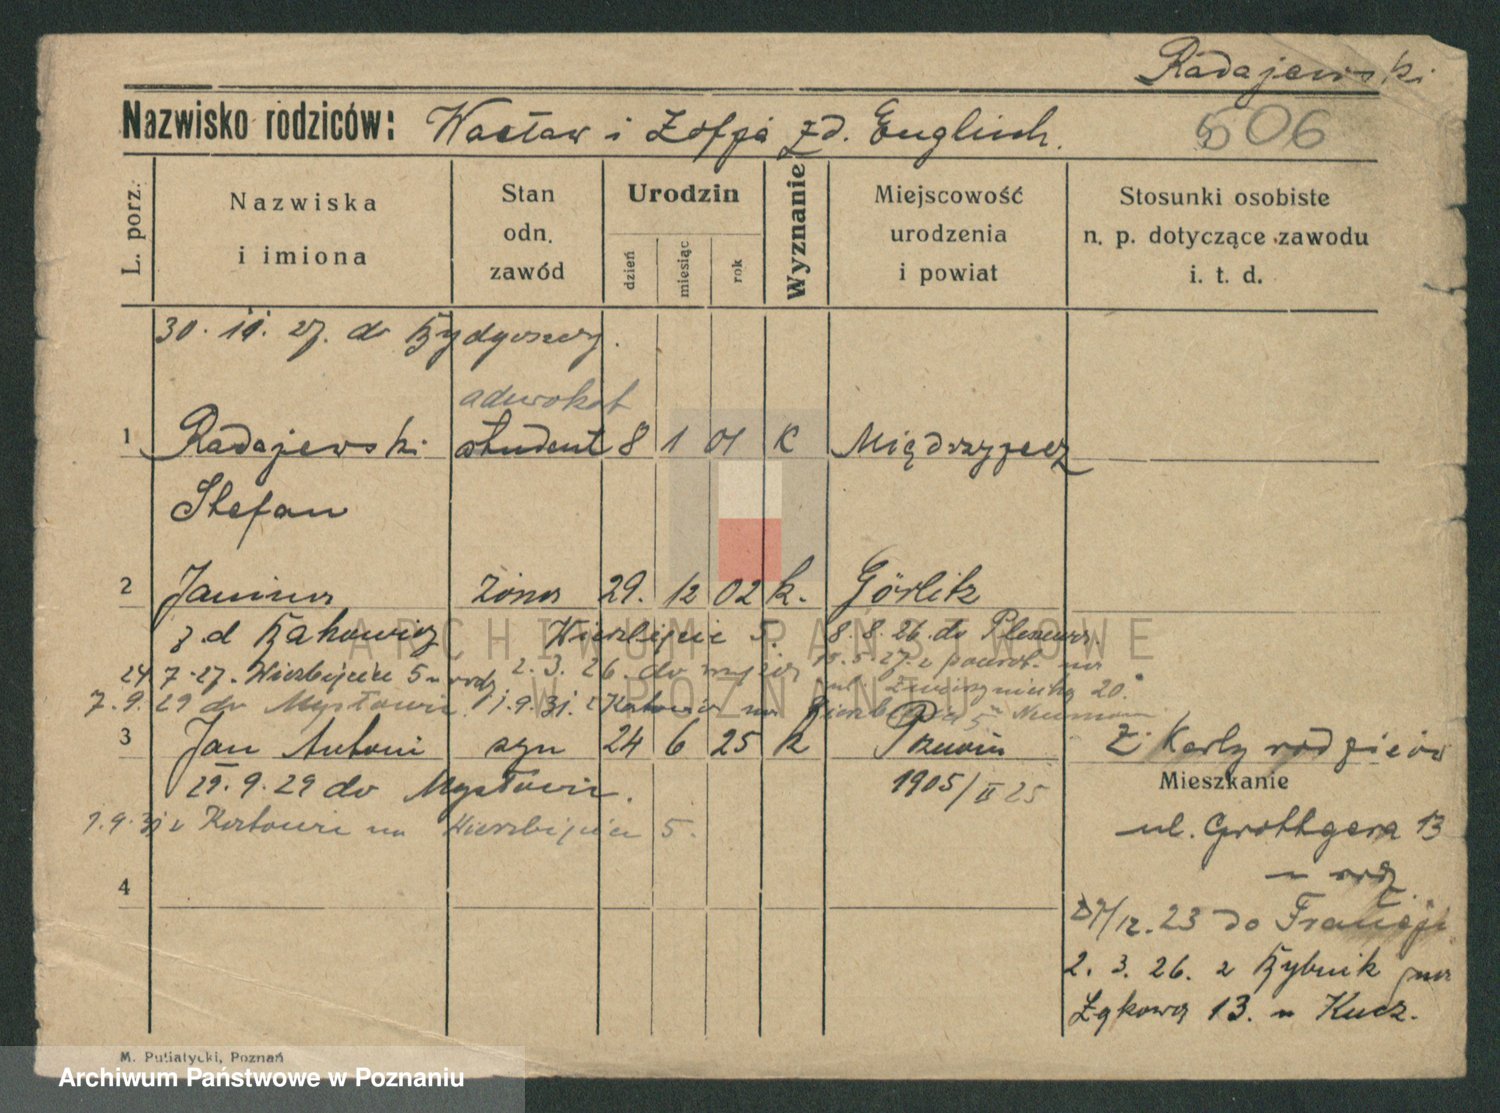 Radajewski
Nazwisko rodziców: Wacław i Zofja zd. Englich.
506
L. porz.
Nazwiska i imiona
Stan odn. zawód
Urodzin
dzień
miesiąc
rok
Wyznanie
Miejscowość urodzenia i powiat
Stosunki osobiste n. p. dotyczące zawodu i. t. d.
30. 10. 27. do Bydgoszczy.
adwokat
1 Radajewski student 8 1 01 K Międzyrzecz
Stefan
2 Janina żona 29. 12 02 k. Görlitz
zd Wierzbięcice 5. 8.8.26. do Pleszewa
24 7.27. Wierzbięcice 5 u rodz 2. 3. 26. do 15.5.27. z powrot. na
ul. 20.
7.9.29 do Mysłowic. 1.9.31. z Katowic na Wierzbięcice 5
3 Jan Antoni syn 24 6 25 k Poznań Z Karty rodziców
29. 9. 29 do Mysłowic. 1905/II 25
Mieszkanie
1.9.31 z Katowic na Wierzbięcice 5.
ul. Grottgera 13
u rodz.
4
27/12. 23 do Francji
2. 3. 26. z Rybnik na
Łąkową 13. u Kucz.
M. Putiatycki, Poznań
ARCHIWUM PAŃSTWOWE
W POZNANIU
Archiwum Państwowe w Poznaniu